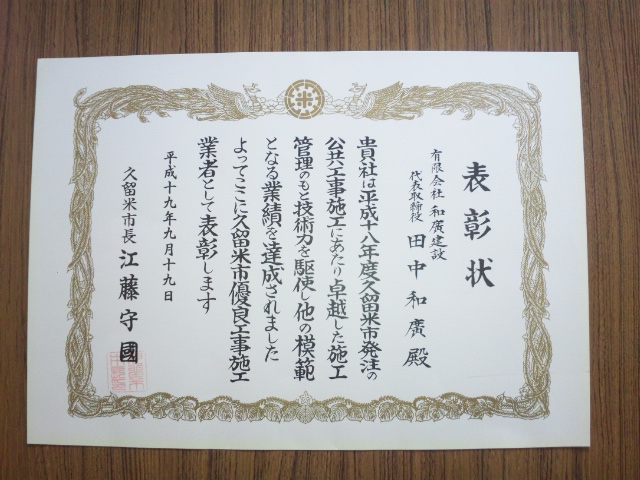 表彰状
有限会社 和廣建設
代表取締役 田中和廣殿
貴社は平成十八年度久留米市発注の
公共工事施工にあたり卓越した施工
管理のもと技術力を駆使し他の模範
となる業績を達成されました
よってここに久留米市優良工事施工
業者として表彰します
平成十九年九月十九日
久留米市長 江藤守國